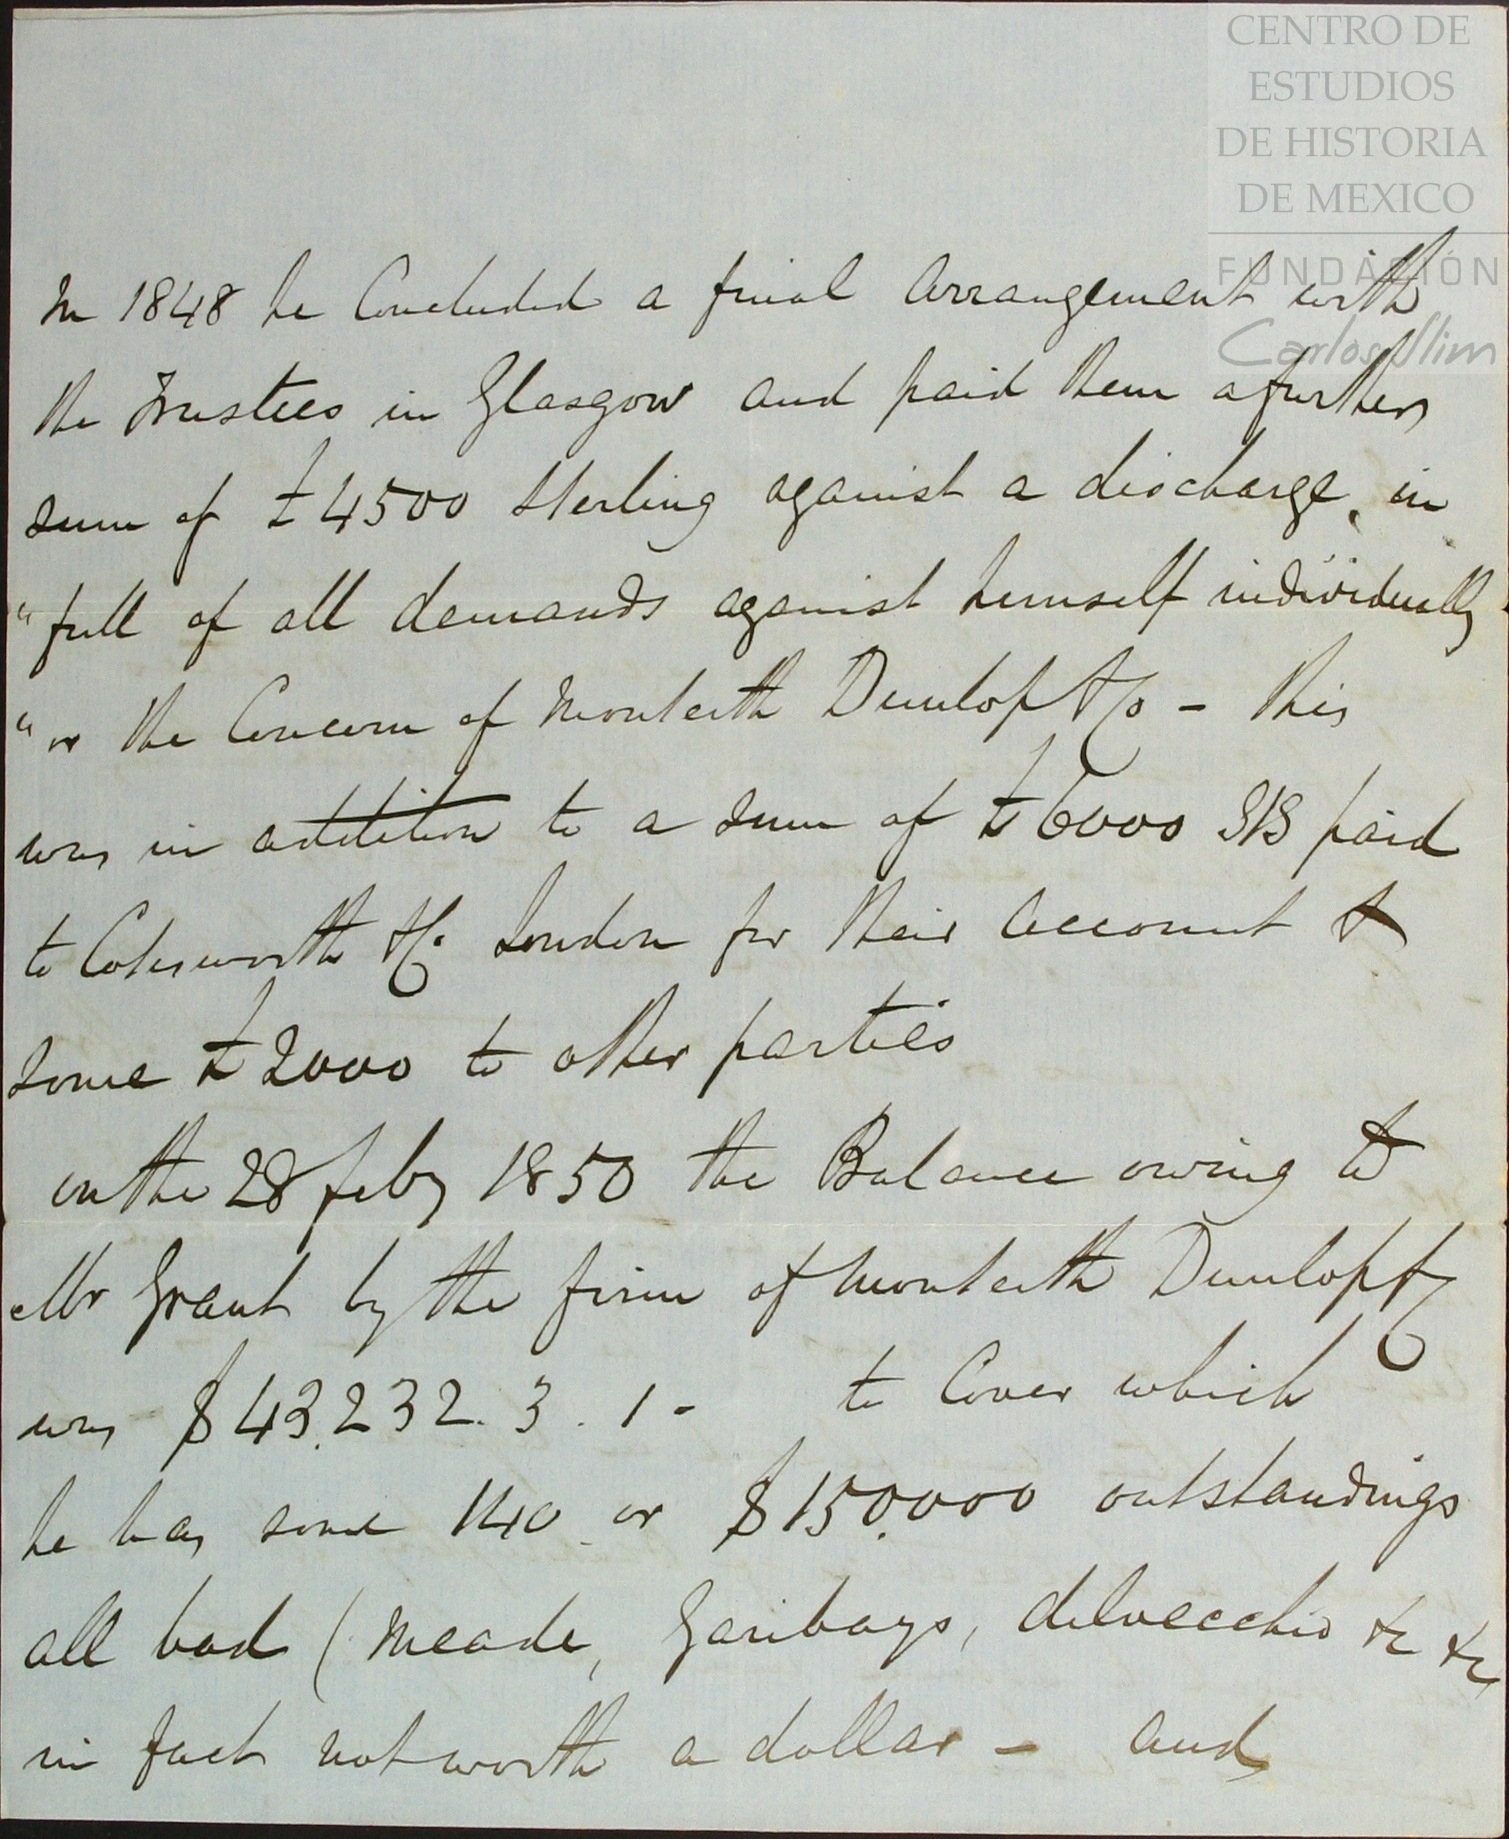 CENTRO DE
ESTUDIOS
DE HISTORIA
DE MEXICO
FUNDACIÓN
Carlos Slim
In 1848 he Concluded a final arrangement with
the Trustees in Glasgow and paid them a further
sum of £4500 Sterling against a discharge, in
"full of all demands against himself individually"
"or the Concern of Monteith Dunlop &Co - this
was in addition to a sum of £6000 paid
to Cotesworth &Co. London for their account &
some £2000 to other parties
on the 28 feby 1850 the Balance owing to
Mr Grant by the firm of Monteith Dunlop &Co
was $43,232. 3. 1 - to Cover which
he has some 140 or $150,000 outstandings
all bad (Meade, Garibays, delvecchio &c &c,
in fact not worth a dollar - and